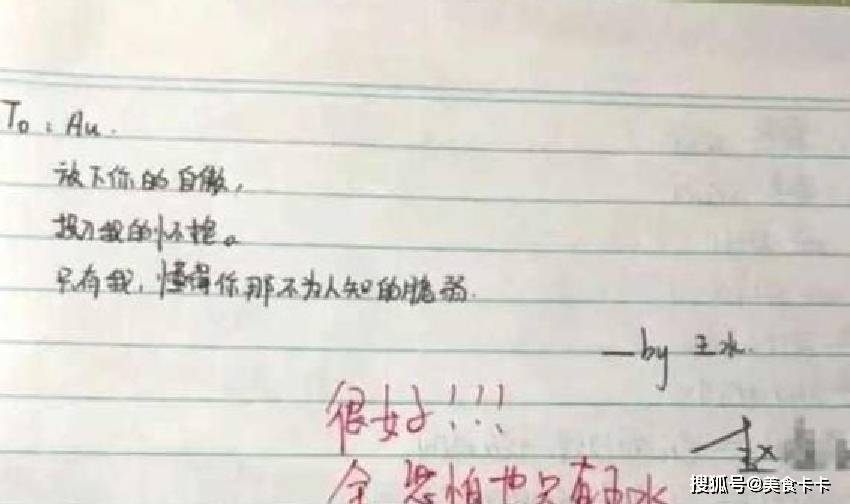 To: Au.
放下你的自傲,
投入我的怀抱。
只有我,懂得你那不为人知的脆弱.
—by 王水.
很好!!!
金恐怕也只有王水
搜狐号@美食卡卡